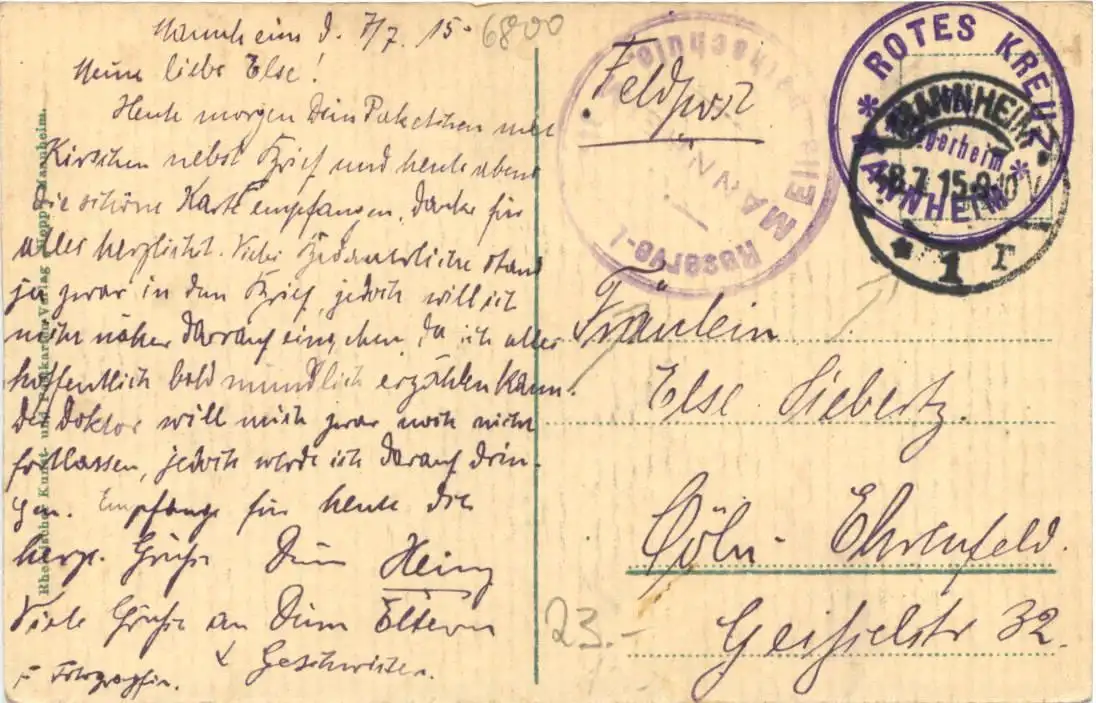 Mannheim d. 7/7. 15.
6800
Meine liebe Else!
Heute morgen Dein Paketchen mit
Kirschen nebst Brief und heute abend
die schöne Karte empfangen, danke für
alles herzlichst. Viele Stand
ja zwar in den Brief, jedoch will ich
nicht näher darauf eingehen, da ich alles
hoffentlich bald mündlich erzählen kann.
Der Doktor will mich zwar noch nicht
fortlassen, jedoch werde ich darauf drin-
gen. Empfange für heute die
herzl. Grüße Dein Heinz
Viele Grüße an Deine Eltern
& Geschwister.
Fotografin.
Rheinische Kunst- und Verlag Mannheim.
Feldpost
Reserve-L
MANN
ROTES KREUZ
* MANNHEIM *
MANNHEIM
8.7.15.
* 1 r
Fräulein
Else Siebertz.
Cöln-Ehrenfeld.
32.
23.-